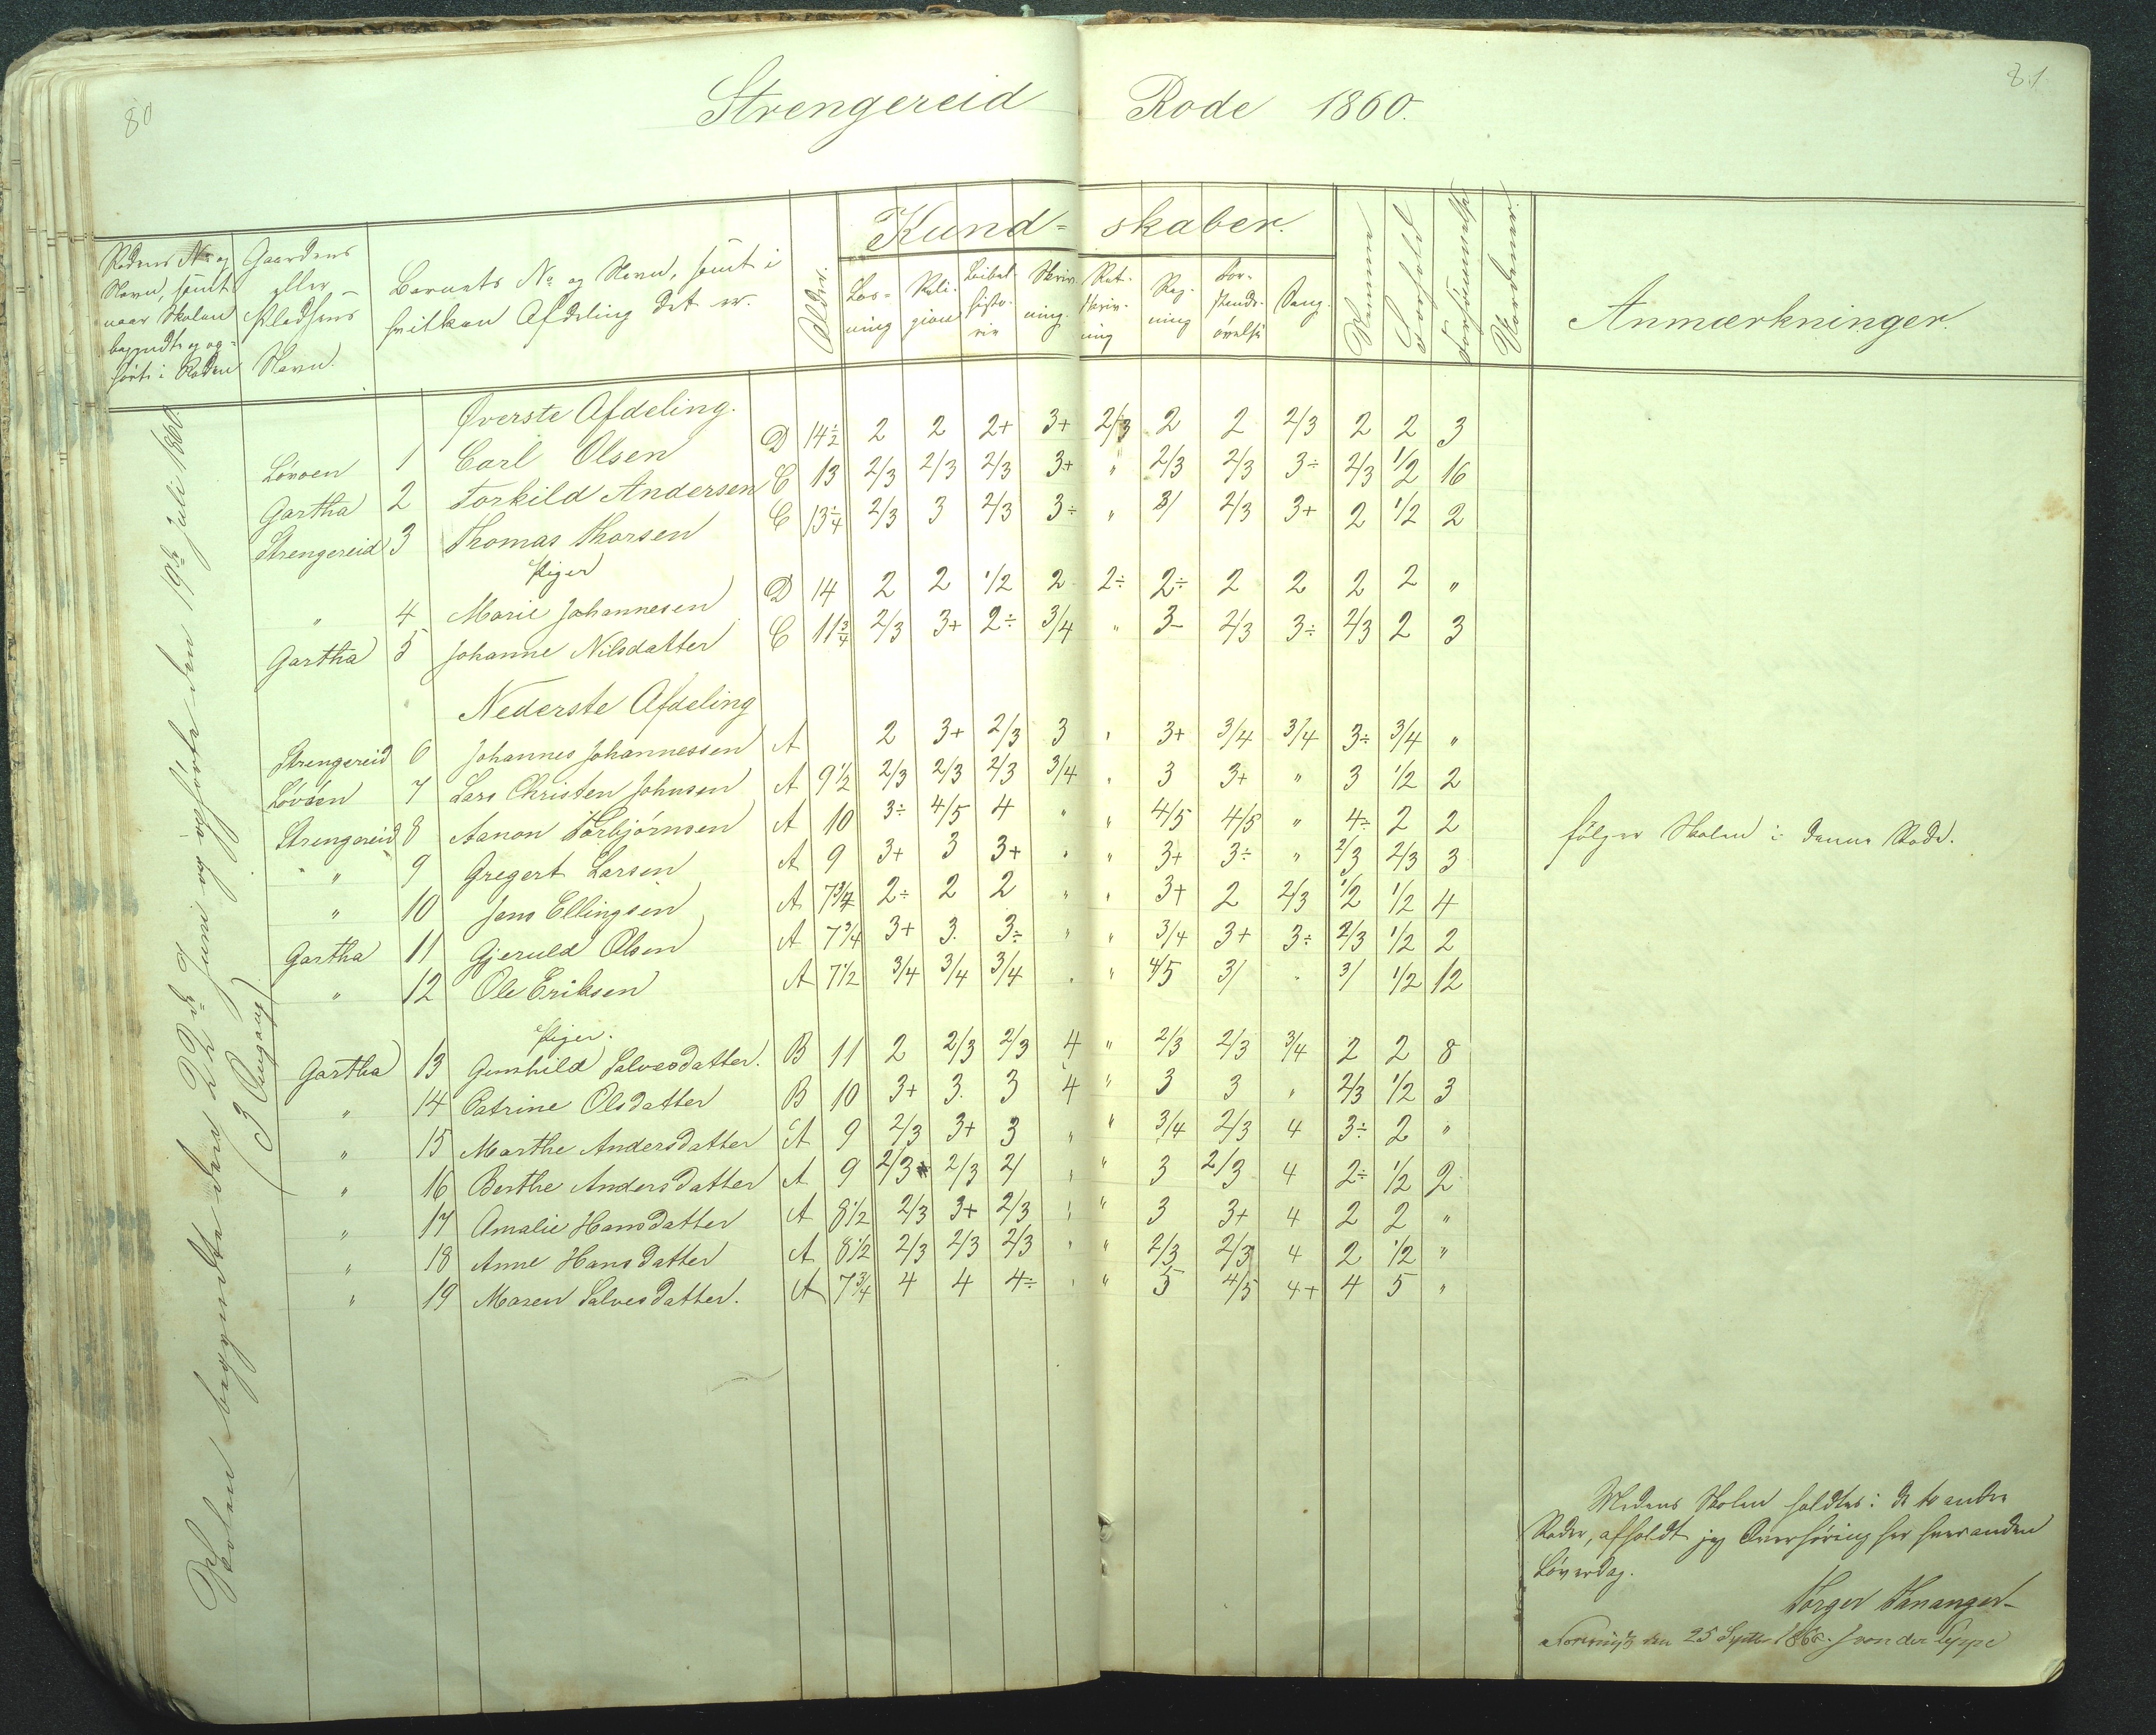 80
81
Strengereid Rode 1860.
Rodens No og Navn, samt naar Skolen begyndte og ophørte i Roden
Gaardens eller Pladsens Navn.
Barnets No og Navn, samt i hvilken Afdeling det er.
Alder.
Kund- skaber.
Læsning
Religion
Bibelhistorie
Skrivning.
Retskrivning
Regning
Forstandsøvelse
Sang.
Nemme
Forhold
Forsømmelse
Anmærkninger.
Skolen begyndte den 22de Juni og ophørte den 19de Juli 1860.
(3 Omgang)
Øverste Afdeling.
Løvoen 1 Carl Olsen D 14 1/2 2 2 2+ 3+ 2/3 2 2 2/3 2 2 3
Gartha 2 Torkild Andersen C 13 2/3 2/3 2/3 3+ " 2/3 2/3 3÷ 2/3 1/2 16
Strengereid 3 Thomas Thorsen C 13 1/4 2/3 3 2/3 3÷ " 3/ 2/3 3+ 2 1/2 2
Piger
" 4 Marie Johannesen D 14 2 2 1/2 2 2÷ 2÷ 2 2 2 2 "
Gartha 5 Johanne Nilsdatter C 11 3/4 2/3 3+ 2÷ 3/4 " 3- 2/3 3÷ 2/3 2 3
Nederste Afdeling
Strengereid 6 Johannes Johannessen A 2 3+ 2/3 3 " 3+ 3/4 3/4 3÷ 3/4 "
Løvoen 7 Lars Christen Johnsen A 9 1/2 2/3 2/3 2/3 3/4 " 3 3+ " 3 1/2 2
Strengereid 8 Aanon Torbjørnsen A 10 3÷ 4/5 4 " " 4/5 4/5 " 4÷ 2 2 følger Skolen i denne Rode.
" 9 Gregert Larsen A 9 3+ 3 3+ " " 3+ 3÷ " 2/3 2/3 3
" 10 Jens Ellingsen A 7 3/4 2÷ 2 2 " " 3+ 2 2/3 1/2 1/2 4
Gartha 11 Gjeruld Olsen A 7 3/4 3+ 3. 3÷ " " 3/4 3+ 3÷ 2/3 1/2 2
" 12 Ole Eriksen A 7 1/2 3/4 3/4 3/4 " " 4/5 3/ " 3/ 1/2 12
Piger.
Gartha 13 Gunhild Salvesdatter. B 11 2 2/3 2/3 4 " 2/3 2/3 3/4 2 2 8
" 14 Catrine Olsdatter B 10 3+ 3. 3 4 " 3 3 " 2/3 1/2 3
" 15 Marthe Andersdatter A 9 2/3 3+ 3 " " 3/4 2/3 4 3÷ 2 "
" 16 Berthe Andersdatter A 9 2/3 2/3 2/ " " 3 2/3 4 2÷ 1/2 2
" 17 Amalie Hansdatter A 8 1/2 2/3 3+ 2/3 " " 3 3+ 4 2 2 "
" 18 Anne Hansdatter A 8 1/2 2/3 2/3 2/3 " " 2/3 2/3 4 2 1/2 "
" 19 Maren Salvesdatter. A 7 3/4 4 4 4÷ " " 5 4/5 4+ 4 5 "
Medens Skolen holdtes i de to andre
Roder, afholdt jeg Overhøring her hveranden
Løverdag.
Torger Vananger
den 25 Septbr 1860. J von der Lippe